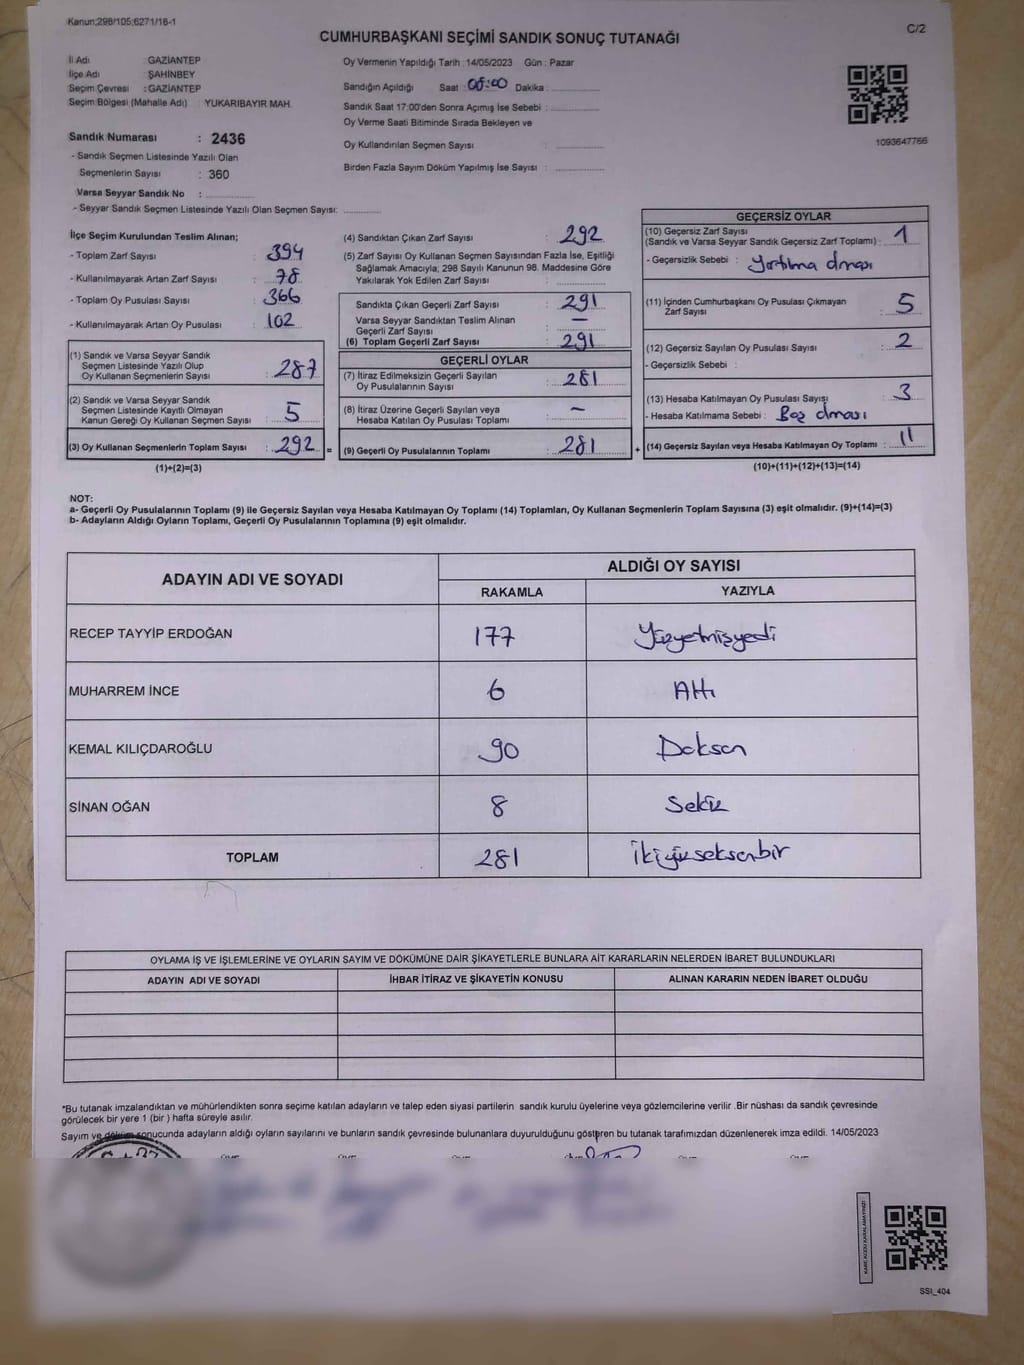 Kanun;298/105;6271/16-1
C/2
CUMHURBAŞKANI SEÇİMİ SANDIK SONUÇ TUTANAĞI
İl Adı : GAZİANTEP
İlçe Adı : ŞAHİNBEY
Seçim Çevresi : GAZİANTEP
Seçim Bölgesi (Mahalle Adı) : YUKARIBAYIR MAH.
Sandık Numarası : 2436
- Sandık Seçmen Listesinde Yazılı Olan
Seçmenlerin Sayısı : 360
Varsa Seyyar Sandık No :
- Seyyar Sandık Seçmen Listesinde Yazılı Olan Seçmen Sayısı:
Oy Vermenin Yapıldığı Tarih : 14/05/2023 Gün : Pazar
Sandığın Açıldığı Saat : 08:00 Dakika :
Sandık Saat 17:00'den Sonra Açımış İse Sebebi :
Oy Verme Saati Bitiminde Sırada Bekleyen ve
Oy Kullandırılan Seçmen Sayısı :
Birden Fazla Sayım Döküm Yapılmış İse Sayısı :
1093647766
İlçe Seçim Kurulundan Teslim Alınan;
- Toplam Zarf Sayısı : 394
- Kullanılmayarak Artan Zarf Sayısı : 78
- Toplam Oy Pusulası Sayısı : 366
- Kullanılmayarak Artan Oy Pusulası : 102
(1) Sandık ve Varsa Seyyar Sandık
Seçmen Listesinde Yazılı Olup
Oy Kullanan Seçmenlerin Sayısı : 287
(2) Sandık ve Varsa Seyyar Sandık
Seçmen Listesinde Kayıtlı Olmayan
Kanun Gereği Oy Kullanan Seçmen Sayısı : 5
(3) Oy Kullanan Seçmenlerin Toplam Sayısı : 292 =
(1)+(2)=(3)
(4) Sandıktan Çıkan Zarf Sayısı : 292
(5) Zarf Sayısı Oy Kullanan Seçmen Sayısından Fazla İse, Eşitliği
Sağlamak Amacıyla, 298 Sayılı Kanunun 98. Maddesine Göre
Yakılarak Yok Edilen Zarf Sayısı :
Sandıkta Çıkan Geçerli Zarf Sayısı : 291
Varsa Seyyar Sandıktan Teslim Alınan
Geçerli Zarf Sayısı : —
(6) Toplam Geçerli Zarf Sayısı : 291
GEÇERLİ OYLAR
(7) İtiraz Edilmeksizin Geçerli Sayılan
Oy Pusulalarının Sayısı : 281
(8) İtiraz Üzerine Geçerli Sayılan veya
Hesaba Katılan Oy Pusulaları Toplamı : —
(9) Geçerli Oy Pusulalarının Toplamı : 281 +
GEÇERSİZ OYLAR
(10) Geçersiz Zarf Sayısı
(Sandık ve Varsa Seyyar Sandık Geçersiz Zarf Toplamı) : 1
- Geçersizlik Sebebi : Yırtılma olması
(11) İçinden Cumhurbaşkanı Oy Pusulası Çıkmayan
Zarf Sayısı : 5
(12) Geçersiz Sayılan Oy Pusulası Sayısı : 2
- Geçersizlik Sebebi :
(13) Hesaba Katılmayan Oy Pusulası Sayısı : 3
- Hesaba Katılmama Sebebi : Boş olması
(14) Geçersiz Sayılan veya Hesaba Katılmayan Oy Toplamı : 11
(10)+(11)+(12)+(13)=(14)
NOT:
a- Geçerli Oy Pusulalarının Toplamı (9) ile Geçersiz Sayılan veya Hesaba Katılmayan Oy Toplamı (14) Toplamları, Oy Kullanan Seçmenlerin Toplam Sayısına (3) eşit olmalıdır. (9)+(14)=(3)
b- Adayların Aldığı Oyların Toplamı, Geçerli Oy Pusulalarının Toplamına (9) eşit olmalıdır.
ADAYIN ADI VE SOYADI ALDIĞI OY SAYISI
RAKAMLA YAZIYLA
RECEP TAYYİP ERDOĞAN 177 Yüzyetmişyedi
MUHARREM İNCE 6 Altı
KEMAL KILIÇDAROĞLU 90 Doksan
SİNAN OĞAN 8 Sekiz
TOPLAM 281 İkiyüzseksenbir
OYLAMA İŞ VE İŞLEMLERİNE VE OYLARIN SAYIM VE DÖKÜMÜNE DAİR ŞİKAYETLERLE BUNLARA AİT KARARLARIN NELERDEN İBARET BULUNDUKLARI
ADAYIN ADI VE SOYADI İHBAR İTİRAZ VE ŞİKAYETİN KONUSU ALINAN KARARIN NEDEN İBARET OLDUĞU
*Bu tutanak imzalandıktan ve mühürlendikten sonra seçime katılan adayların ve talep eden siyasi partilerin sandık kurulu üyelerine veya gözlemcilerine verilir .Bir nüshası da sandık çevresinde
görülecek bir yere 1 (bir ) hafta süreyle asılır.
Sayım ve döküm sonucunda adayların aldığı oyların sayılarını ve bunların sandık çevresinde bulunanlara duyurulduğunu gösteren bu tutanak tarafımızdan düzenlenerek imza edildi. 14/05/2023
KARE KODU KARALAMAYINIZ!
SSI_404